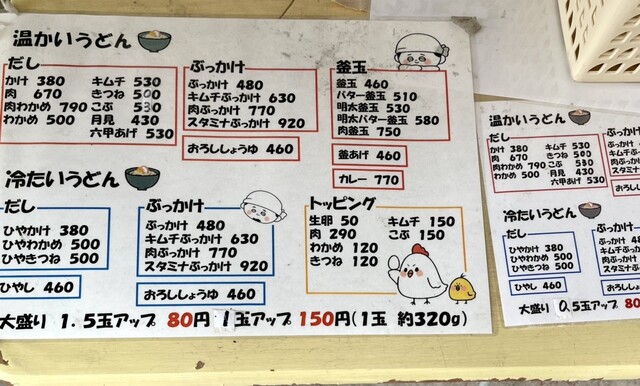 温かいうどん
だし
かけ 380
肉 670
肉わかめ 790
わかめ 500
キムチ 530
きつね 500
こぶ 530
月見 430
六甲あげ 530
ぶっかけ
ぶっかけ 480
キムチぶっかけ 630
肉ぶっかけ 770
スタミナぶっかけ 920
おろししょうゆ 460
釜玉
釜玉 460
バター釜玉 510
明太釜玉 530
明太バター釜玉 580
肉釜玉 750
釜あげ 460
カレー 770
冷たいうどん
だし
ひやかけ 380
ひやわかめ 500
ひやきつね 500
ひやし 460
ぶっかけ
ぶっかけ 480
キムチぶっかけ 630
肉ぶっかけ 770
スタミナぶっかけ 920
おろししょうゆ 460
トッピング
生卵 50
肉 290
わかめ 120
きつね 120
キムチ 150
こぶ 150
大盛り 1.5玉アップ 80円 1玉アップ 150円(1玉 約320g)
温かいうどん
だし
かけ 380
肉 670
肉わかめ 790
わかめ 500
キムチ 530
きつね 500
こぶ 580
月見 430
六甲あげ 530
ぶっか
ぶっかけ
キムチぶ
肉ぶっか
スタミナ
おろし
冷たいうどん
だし
ひやかけ 380
ひやわかめ 500
ひやきつね 500
ひやし 460
ぶっかけ
ぶっかけ 4
キムチぶっ
肉ぶっかけ
スタミナぶ
おろししょ
大盛り 0.5玉アップ 80